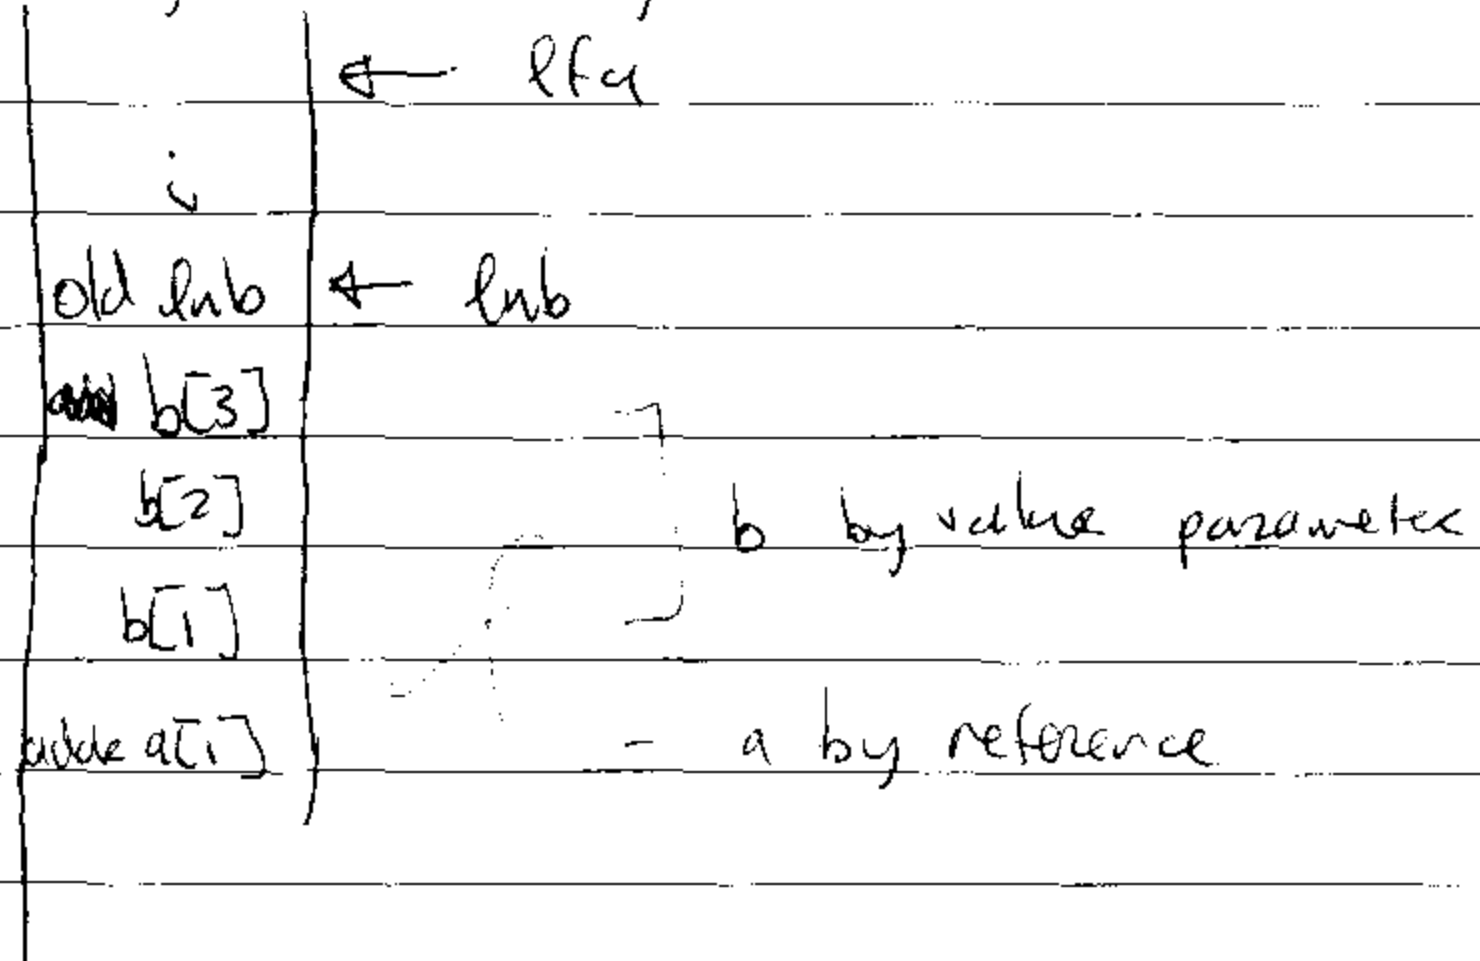 ← lfa
i
old lnb ← lnb
b[3]
b[2] b by value parameter
b[1]
a[1] - a by reference